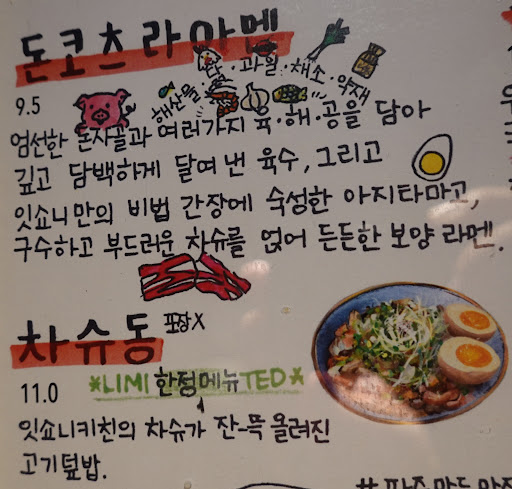 돈코츠라아멘
해산물·닭·과일·채소·약재
9.5
엄선한 돈사골과 여러가지 육·해·공을 담아
깊고 담백하게 달여 낸 육수, 그리고
잇쇼니만의 비법 간장에 숙성한 아지타마고,
구수하고 부드러운 차슈를 얹어 든든한 보양 라멘.
차슈동 포장X
11.0 *LIMI 한정메뉴TED*
잇쇼니키친의 차슈가 잔-뜩 올려진
고기덮밥.